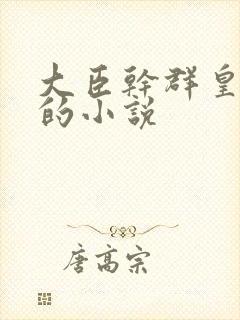 大臣幹群皇
的小說
唐高宗